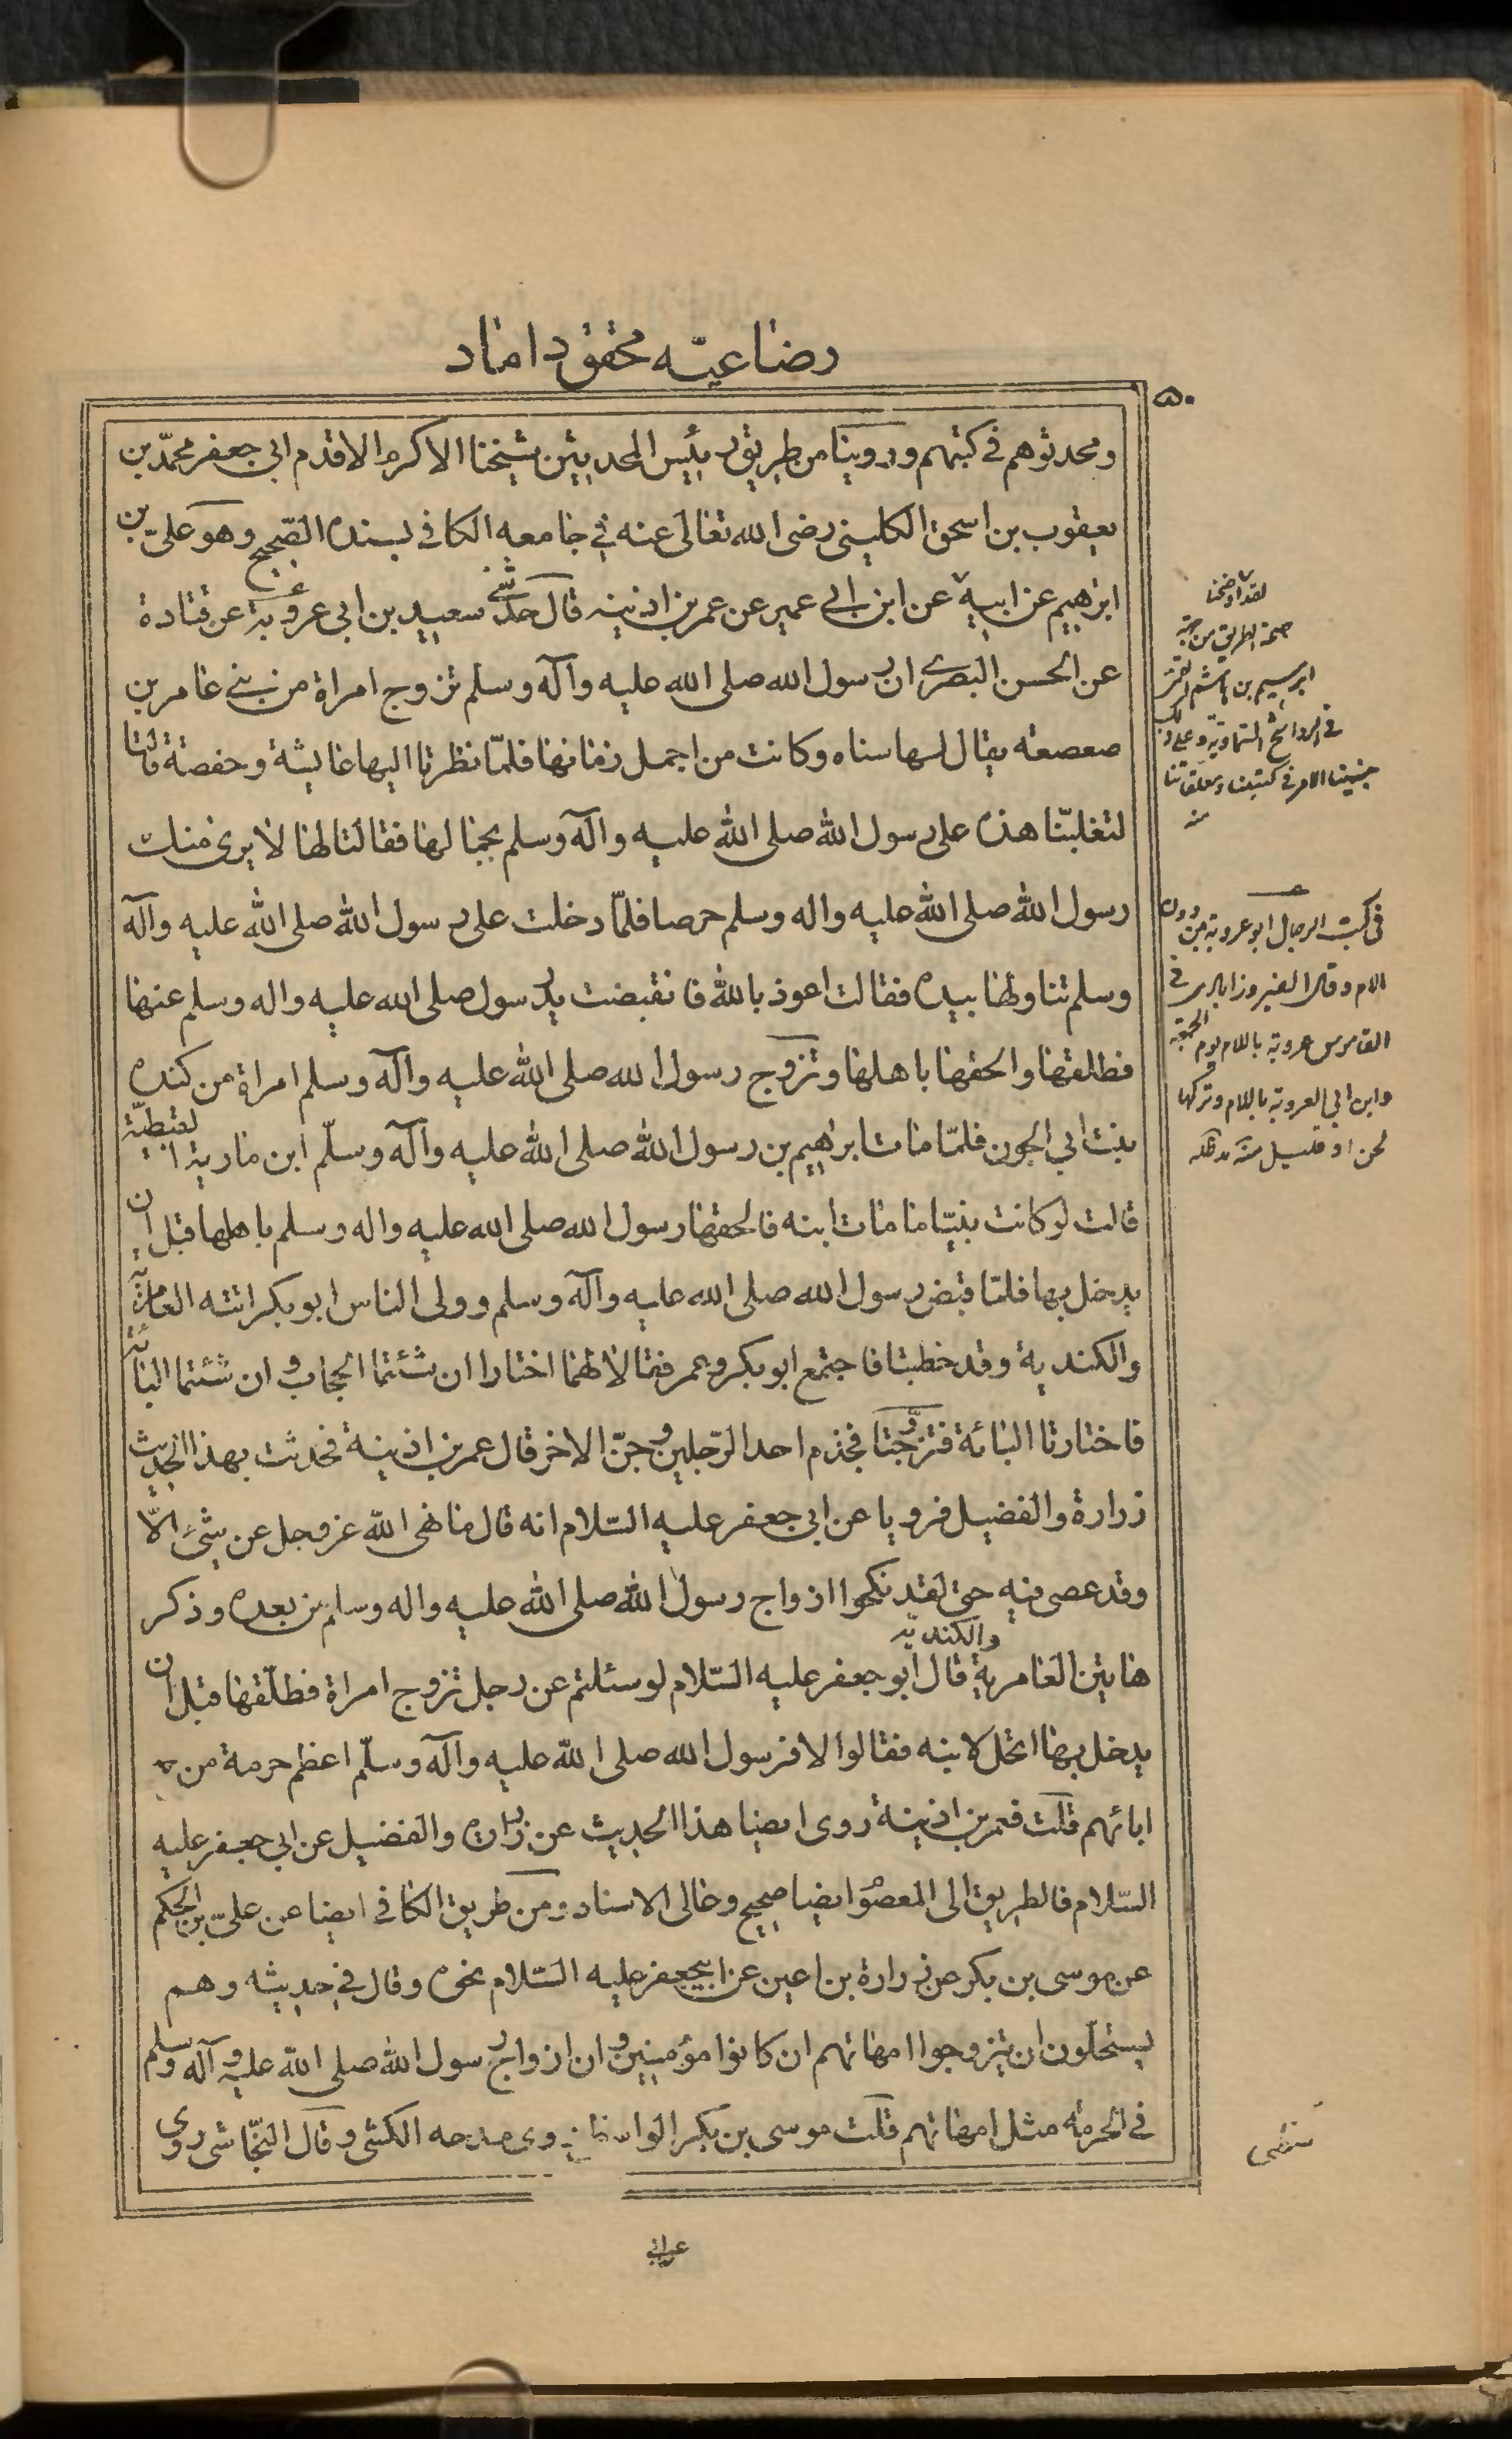 رضاعیّه محقق داماد
۵۰
ومحدثوهم فی کتبهم وروینا من طریق رئیس المحدثین شیخنا الاکرم الاقدم ابی جعفر محمّد بن
یعقوب بن اسحق الکلینی رضی الله تعالی عنه فی جامعه الکافی بسنده الصّحیح وهو علیّ بن
ابرهیم عن ابیه عن ابن ابی عمیر عن عمر بن اذینه قال حدّثنی سعید بن ابی عروبة عن قتادة
عن الحسن البصری ان رسول الله صلی الله علیه وآله وسلم تزوج امراة من بنی عامر بن
صعصعه یقال لها سناه وکانت من اجمل زمانها فلمّا نظرتا الیها عایشة وحفصة قالتا
لتغلبنّا هذه علی رسول الله صلی الله علیه وآله وسلم بجمالها فقالتا لها لا یری منك
رسول الله صلی الله علیه واله وسلم حرصا فلمّا دخلت علی رسول الله صلی الله علیه وآله
وسلم تناولها بیده فقالت اعوذ بالله فانقبضت ید رسول صلی الله علیه واله وسلم عنها
فطلقها والحقها باهلها وتزوّج رسول الله صلی الله علیه وآله وسلم امراة من کنده
بنت ابی الجون فلمّا مات ابرهیم بن رسول الله صلی الله علیه وآله وسلّم ابن ماریة القبطیّة
قالت لو کانت نبیّا ما مات ابنه فالحقها رسول الله صلی الله علیه واله وسلم باهلها قبل ان
یدخل بها فلمّا قبض رسول الله صلی الله علیه وآله وسلم وولی الناس ابو بکر اتته العامریّة
والکندیة وقد خطبتا فاجتمع ابو بکر وعمر فقالا لهما اختارا ان شئتما الحجاب وان شئتما البائة
فاختارتا البائة فتزوّجتا فجذم احد الرّجلین وجنّ الاخر قال عمر بن اذینة فحدثت بهذا الحدیث
زرارة والفضیل فرویا عن ابی جعفر علیه السّلام انه قال ما نهی الله عز وجل عن شیء الّا
وقد عصی فیه حتی لقد نکحوا ازواج رسول الله صلی الله علیه واله وسلم من بعده وذکر
هاتین العامریة والکندیه قال ابو جعفر علیه السّلام لو سئلتم عن رجل تزوج امراة فطلّقها قبل ان
یدخل بها اتحل لابنه فقالوا لا فرسول الله صلی الله علیه وآله وسلّم اعظم حرمة من
ابائهم قلت فعمر بن اذینة روی ایضا هذا الحدیث عن زرارة والفضیل عن ابی جعفر علیه
السّلام فالطریق الی المعصوم ایضا صحیح وعالی الاسناد ومن طریق الکافی ایضا عن علیّ بن الحکم
عن موسی بن بکر عن زرارة بن اعین عن ابیجعفر علیه السّلام نحوه وقال فی حدیثه وهم
یستحلّون ان یتزوجوا امهاتهم ان کانوا مؤمنین وان ازواج رسول الله صلی الله علیه وآله وسلم
فی الحرمة مثل امهاتهم قلت موسی بن بکر الواسطی مدحه الکشی وقال النجّاشی روی
لقد اوضحنا
صحة الطریق من جهة
ابرهیم بن هاشم القمی
فی الرواشح السّماویّة وعلی ذلک
بنینا الامر فی کتبنا ومعلقاتنا
منه
فی کتب الرجال ابو عروبة من دون
اللام وقال الفیروزابادی فی
القاموس عروبة باللام یوم الجمعة
وابن ابی العروبة باللام وترکها
لحن او قلیل منه مد ظله
عن ابی